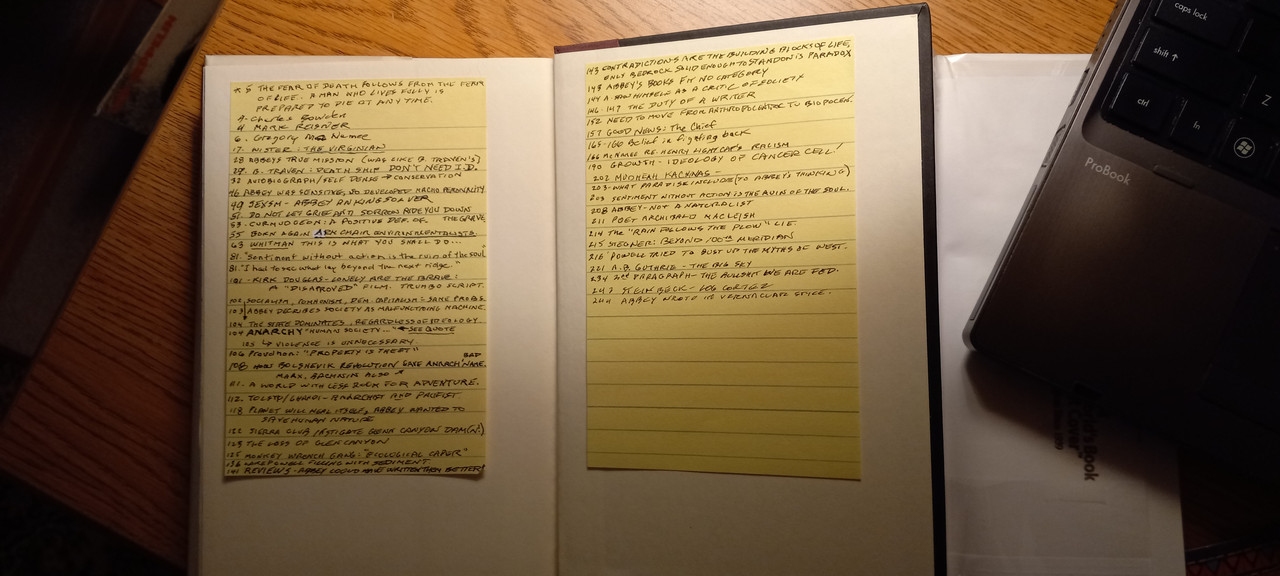 * 5 THE FEAR OF DEATH FOLLOWS FROM THE FEAR
OF LIFE. A MAN WHO LIVES FULLY IS
PREPARED TO DIE AT ANY TIME.
Charles Bowden
MARK REISNER
6. Gregory Mc Namee
17. WISTER: THE VIRGINIAN
28 ABBEYS TRUE MISSION (WAS LIKE B. TRAVEN'S)
29. B. TRAVEN: DEATH SHIP DON'T NEED I.D.
32 AUTOBIOGRAPH/SELF → CONSERVATION
46 ABBEY WAS SENSITIVE, SO DEVELOPED MACHO PERONALITY
49 SEXSM - ABBEY AN KINGSOLVER
51. DO NOT LET GRIEF AND SORROW RIDE YOU DOWN
THE GRAVE
53. CURMUDGEON: A POSITIVE DEF. OF.
55 BORN AGAIN ARM CHAIR ENVIRONMENTALISTS
63 WHITMAN THIS IS WHAT YOU SHALL DO...
81. "Sentiment without action is the ruin of the soul"
81. "I had to see what lay beyond the next ridge."
101 - KIRK DOUGLAS - LONELY ARE THE BRAVE:
A "DISAPROVED" FILM. TRUMBO SCRIPT.
102, SOCIALISM, COMMUNISM, DEM. CAPITALISM: SAME PROBS.
103 ABBEY DECRIBES SOCIETY AS MALFUNCTIONING MACHINE
104 THE STATE DOMINATES, REGARDLESS OF IDEOLOGY
104 ANARCHY "HUMAN SOCIETY..." ← SEE QUOTE
105 ↳ VIOLENCE IS UNNECESSARY
106 Proudhon: "PROPERTY IS THEFT"
BAD
108 HOW BOLSHEVIK REVOLUTION GAVE ANARCH' NAME.
MARX, BACHNIN ALSO
111. A WORLD WITH LESS ROOM FOR ADVENTURE.
112. TOLSTOY/GHANDI - ANARCHIST AND PACIFIST
118 PLANET WILL HEAL ITSELF, ABBEY WANTED TO
SAVE HUMAN NATURE
122 SIERRA CLUB GLENN CANYON DAM(N!)
123 THE LOSS OF GLEN CANYON
125 MONKEY WRENCH GANG: "BIOLOGICAL CAPER"
136 LAKE POWELL FILLING WITH SEDIMENT
141 REVIEWS - ABBEY COULD HAVE WRITTEN THEM BETTER!
143 CONTRADICTIONS ARE THE BUILDING BLOCKS OF LIFE,
ONLY BEDROCK SOLID ENOUGH TO STAND ON IS PARADOX
143 ABBEY'S BOOKS FIT NO CATEGORY
144 A. SAW HIMSELF AS A CRITIC OF SOCIETY
146-147 THE DUTY OF A WRITER
152 NEED TO MOVE FROM TO
157 GOOD NEWS: The Chief
165-166 Belief in fighting back
166 McNAMEE RE. HENRY LIGHTCAP'S RACISM
190 GROWTH - IDEOLOGY OF CANCER CELL!
202 MUDHEAD KACHINAS -
203 - WHAT PARADISE INCLUDES (TO ABBEY'S THINKING)
203 SENTIMENT WITHOUT ACTION IS THE RUIN OF THE SOUL.
208 ABBEY - NOT A NATURALIST
211 POET ARCHIBALD MACLEISH
214 THE "RAIN FOLLOWS THE PLOW" LIE.
215 STEGNER: BEYOND 100TH MERIDIAN
216 POWELL TRIED TO BUST UP THE MYTHS OF WEST.
221 A.B. GUTHRIE - THE BIG SKY
234 2ND PARAGRAPH - THE BULLSHIT WE ARE FED.
242 STEINBECK - LOG CORTEZ
244 ABBEY WROTE IN VERNACULAR STYLE.
caps lock
shift ↑
ctrl
fn
Z
ProBook